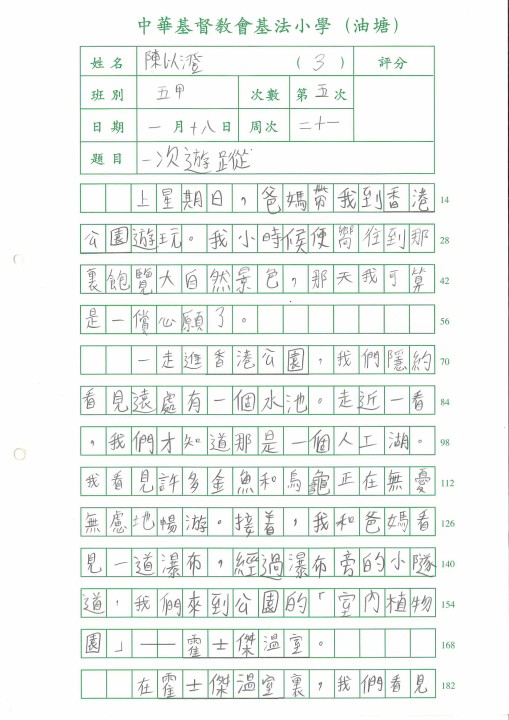 中華基督教會基法小學（油塘）
姓名 陳以澄 （3） 評分
班別 五甲 次數 第五次
日期 一月十八日 周次 二十一
題目 一次遊蹤
上星期日，爸媽帶我到香港 14
公園遊玩。我小時候便嚮往到那 28
裏飽覽大自然景色，那天我可算 42
是一償心願了。 56
一走進香港公園，我們隱約 70
看見遠處有一個水池。走近一看 84
，我們才知道那是一個人工湖。 98
我看見許多金魚和烏龜正在無憂 112
無慮地暢游。接着，我和爸媽看 126
見一道瀑布，經過瀑布旁的小隧 140
道，我們來到公園的「室內植物 154
園」——霍士傑溫室。 168
在霍士傑溫室裏，我們看見 182